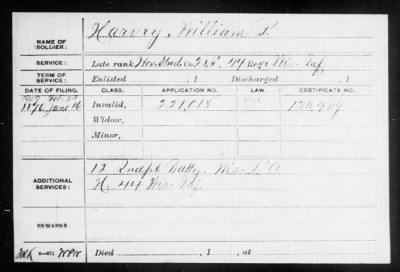 NAME OF SOLDIER: Harvey, William P.
SERVICE: Late rank, Hos. Stwd. Co. 44 Reg't Wis. Inf.
TERM OF SERVICE: Enlisted , 1 Discharged , 1
DATE OF FILING. CLASS. APPLICATION NO. LAW. CERTIFICATE NO.
1876 June 16 Invalid, 221,018
Widow,
Minor,
ADDITIONAL SERVICES: 12 Indpt Batty. Wis. L A
H. 44 Wis. Inf.
REMARKS
Died , 1 , at